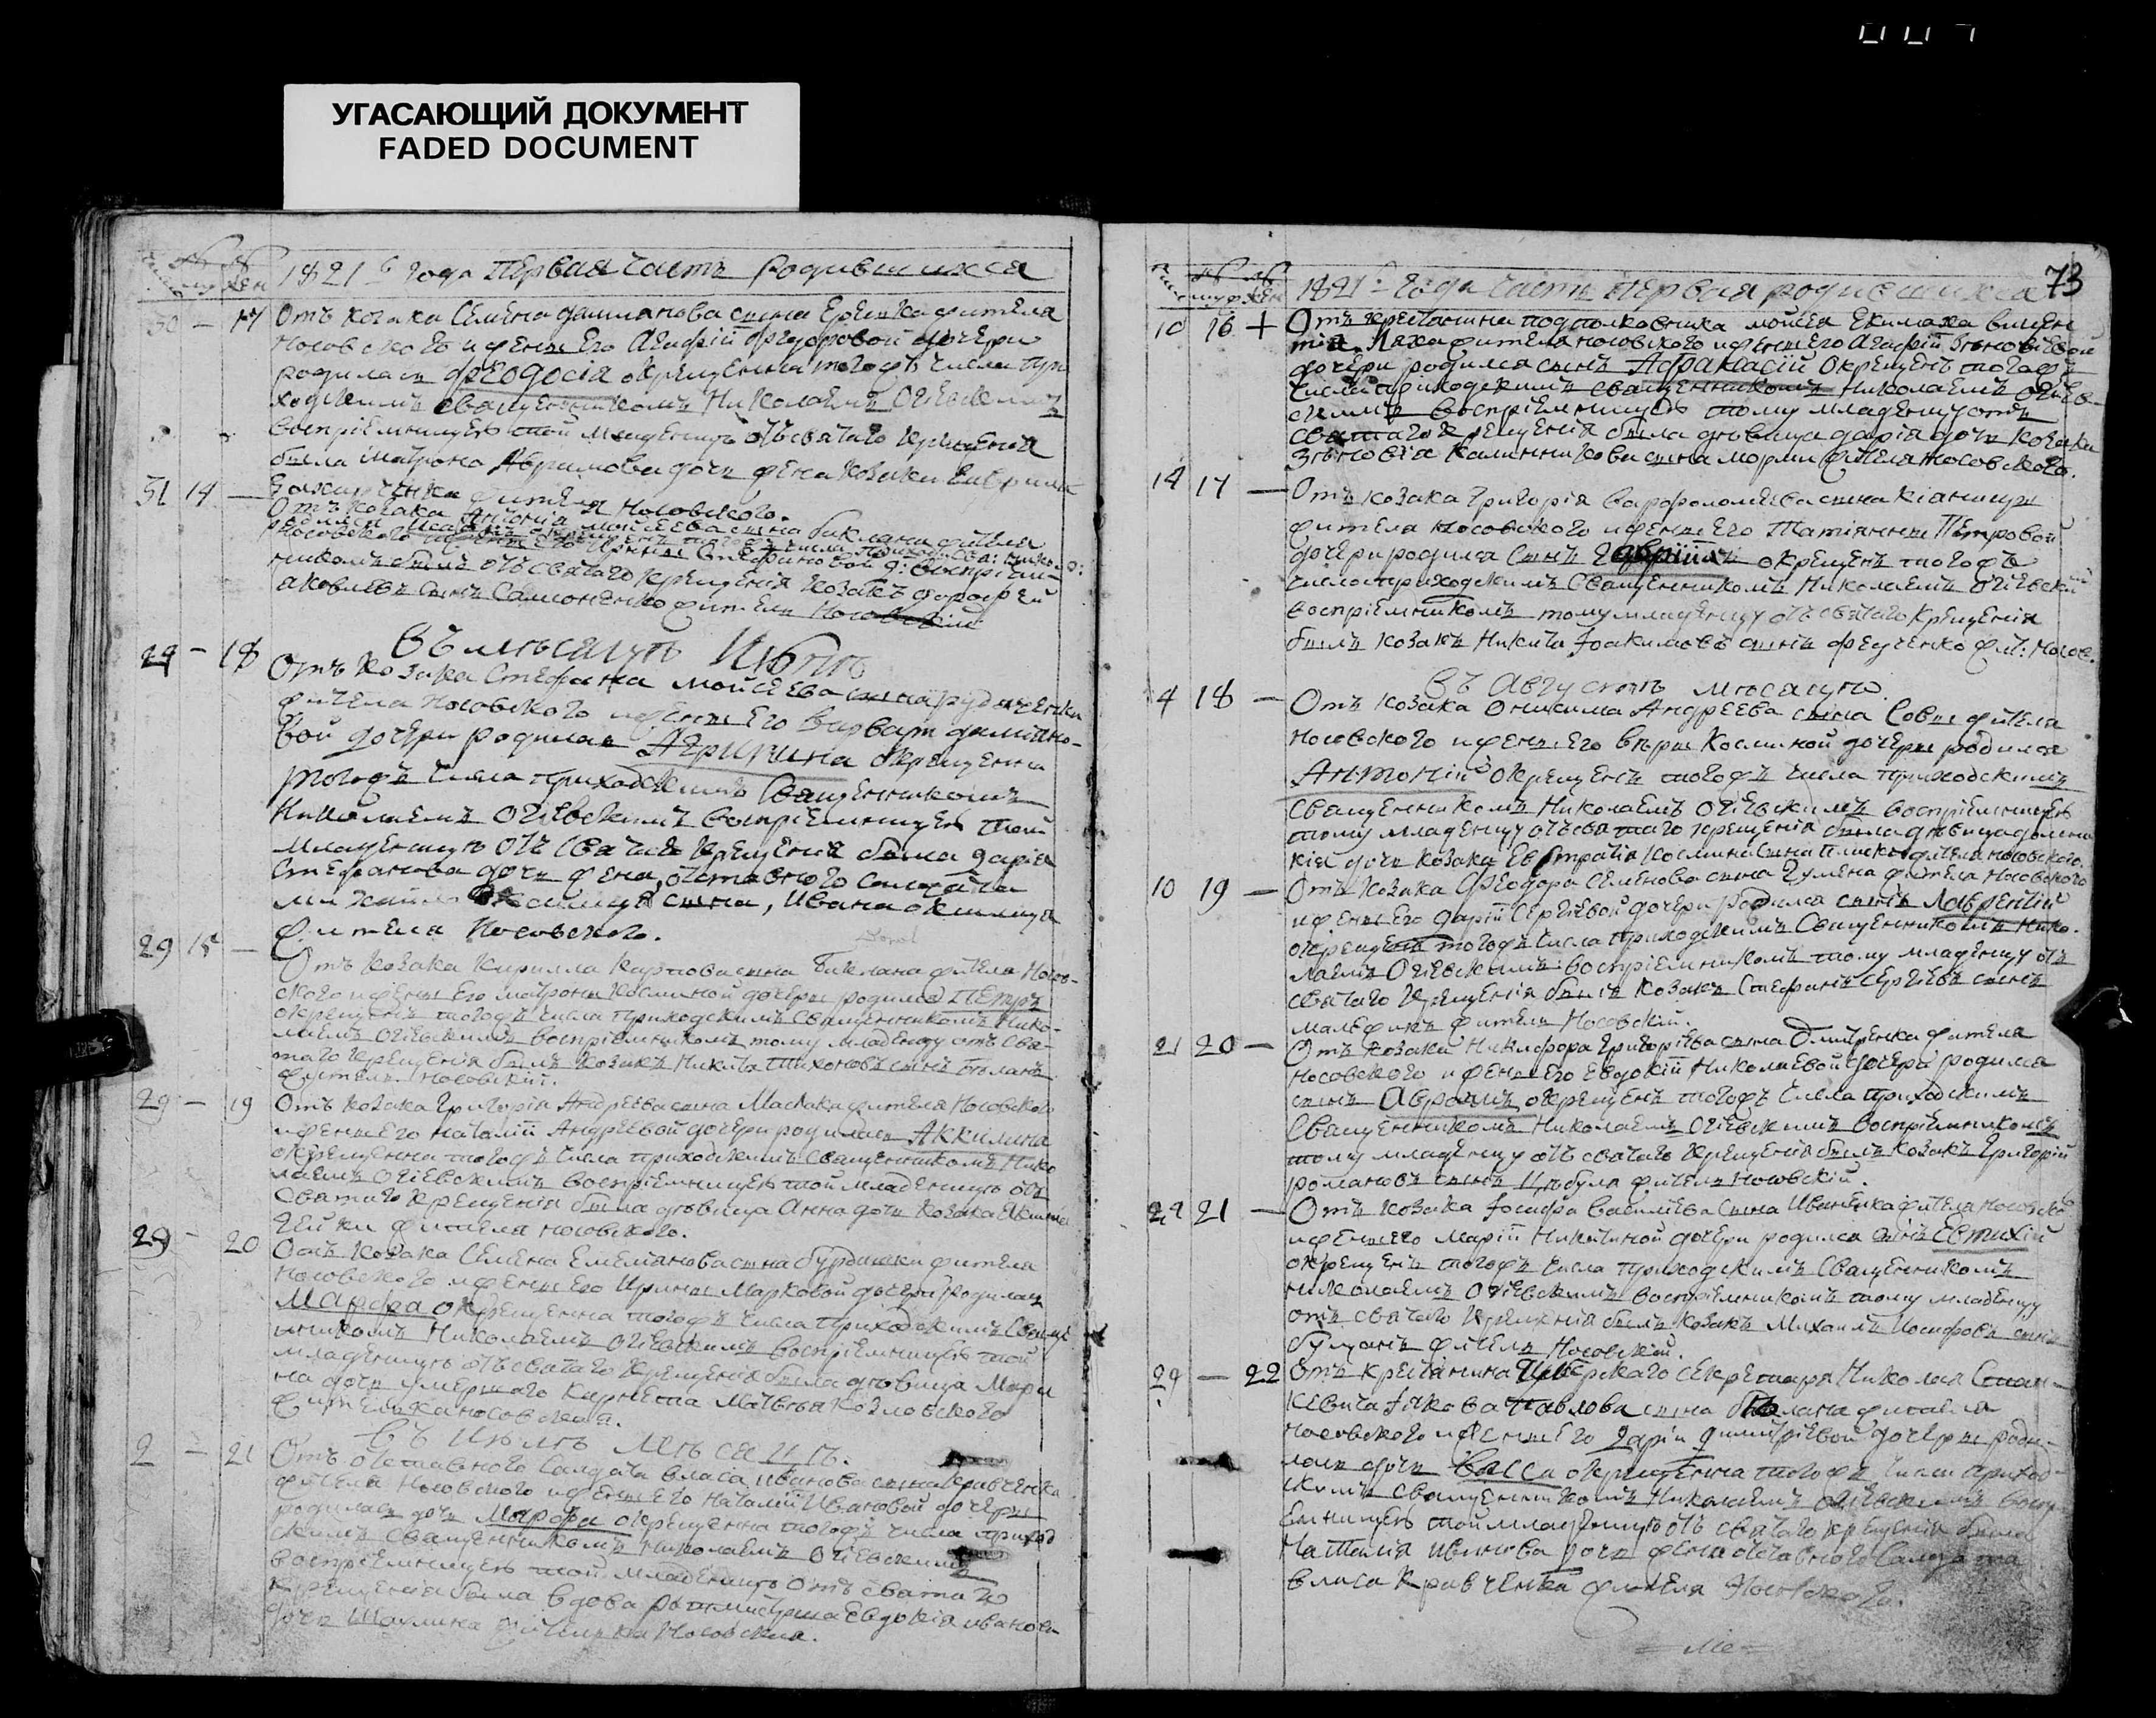 УГАСАЮЩИЙ ДОКУМЕНТ
FADED DOCUMENT
1821 года Первая часть родившихся
30 — 17 Отъ козака Семена сына жителя
Носовского и жены Его Агафіи Феодоровой дочери
родилась Феодосія окрещенна тогожъ числа при
ходскимъ священникомъ Николаемъ Огіевскимъ
воспріемницею той младеницѣ отъ святаго крещенія
была Матрона Аврамова дочь жена козака Гаврила
Захарченка жителя Носовского.
31 14 — Отъ козака Антонія Моисеева сына Биклана жителя
Носовского
никомъ былъ отъ святаго крещенія козакъ Дорофей
Яковлевъ сынъ Самоненко житель Носовскій
Въ мѣсяцѣ Іюлѣ
29 — 18 Отъ козака Стефана Мойсеева сына Рудиченка
жителя Носовского и жены Его Варвары Даміано-
вой дочери родилась Агрипина окрещенна
тогожъ числа приходскимъ Священникомъ
Николаемъ Огіевскимъ воспріемницею той
младеницѣ отъ Святаго Крещенія была Дарія
Стефанова дочь жена отставного Солдата
Михайла сына, Ивана
жителя Носовского.
29 15 — Отъ Козака Кирилла Карпова сына Биклана жителя Носов-
ского и жены Его Матроны Косминой дочеры родился Петръ
окрещенъ тогожъ числа приходскимъ Священникомъ Нико-
лаемъ Огіевскимъ воспріемникомъ тому младенцу отъ Свя-
таго крещенія былъ козакъ Никита Тихоновъ сынъ Бѣланъ
житель Носовскій.
29 — 19 Отъ козака Григорія Андреева сына Маслака жителя Носовского
и жены Его Наталіи Андреевой дочери родилась Аккилина
окрещенна тогожъ числа приходскимъ Священникомъ Нико
лаемъ Огіевскимъ воспріемницею той младеницѣ отъ
Святаго крещенія была дѣвица Анна дочь Козака
жителя Носовского.
29 — 20 Отъ Козака Семена Емеліанова сына Бурдышки жителя
Носовского и жены Его Ирины Марковой дочери родилась
Марфа окрещенна тогожъ числа приходскимъ Свяще
нникомъ Николаемъ Огіевскимъ воспріемницею той
младеницѣ отъ святаго Крещенія была дѣвица Мари
на дочь умершаго Карнета Матвѣя Козловского
жителька Носовская.
Въ Іюлѣ Мѣсяцѣ.
2 — 21 Отъ отставного Салдата Власа Иванова сына Кравченка
жителя Носовского и жены Его Наталіи Ивановой дочеры
родилась дочь Марфа окрещенна тогожъ числа приход
скимъ священникомъ Николаемъ Огіевскимъ
воспріемницею той младеницѣ отъ святаго
крещенія была вдова ротмистрша Евдокія иванова
дочь жителька Носовская.
73
1821 года часть Первая родившихся
10 16 + Отъ крестянина подполковника Мойсея
жителя Носовского и жены Его Агафіи
дочери родился сынъ Афанасій окрещенъ тогожъ
числа приходскимъ священникомъ Николаемъ Огіев-
скимъ воспріемницею тому младенцу отъ
святаго крещенія была дѣвица Дарія дочь козака
Зѣновія Калинникова сына жителя Носовского.
14 17 — Отъ козака Григорія Варфоломеева сына Кіяницы
жителя Носовского и жены Его Татіянны Петровой
дочери родился Сынъ Гавріилъ окрещенъ тогожъ
числа приходскимъ Священникомъ Николаемъ Огіевски
воспріемникомъ тому младенцу отъ святаго Крещенія
былъ козакъ Никита Іоакимовъ сынъ Федченко жит: Носов.
Въ Августѣ мѣсяцѣ
4 18 — Отъ козака Онисима Андреева сына Совы жителя
Носовского и жены Его Вѣры Косминой дочеры родился
Антоній окрещенъ тогожъ числа приходскимъ
Священникомъ Николаемъ Огіевскимъ воспріемницею
тому младенцу отъ святаго крещенія была дѣвица Домни
кія дочь козака Евстратія Космина Сына жителя Носовского.
10 19 — Отъ козака Феодора Семенова сына Гумена жителя Носовского
и жены Его Даріи Сергіевой дочери родился сынъ Лаврентій
окрещенъ тогожъ числа приходскимъ Священникомъ Нико-
лаемъ Огіевскимъ воспріемникомъ тому младенцу отъ
святаго Крещенія былъ козакъ Стефанъ Сергіевъ сынъ
житель Носовскій.
21 20 — Отъ козака Никифора Григоріева сына Дмитренка жителя
Носовского и жены Его Евдокіи Николаевой дочери родился
сынъ Аврамъ окрещенъ тогожъ числа приходскимъ
Священникомъ Николаемъ Огіевскимъ воспріемникомъ
тому младенцу отъ святаго крещенія былъ козакъ Григорій
Романовъ сынъ Цѣбуля житель Носовскій.
22 21 — Отъ козака Іосифа Васильева Сына Иваненка жителя Носовско
и жены его Маріи Никитиной дочери родился сынъ Евтихій
окрещенъ тогожъ числа приходскимъ Священникомъ
Николаемъ Огіевскимъ воспріемникомъ тому младенцу
отъ святаго крещенія былъ козакъ Михаилъ Иосифовъ сынъ
житель Носовскій.
29 — 22 Отъ крестянина Секретаря Николая Стан-
кевича Якова Павлова сына Бѣлана жителя
Носовского и жены Его Даріи Димитріевой дочеры роди-
лась дочь Васса окрещенна тогожъ числа приход-
скимъ священникомъ Николаемъ Огіевскимъ воспрі
емницею той младеницѣ отъ святаго крещенія была
Наталія иванова дочь жена отставного Салдата
Власа Кравченка жителя Носовского.
= Ме =